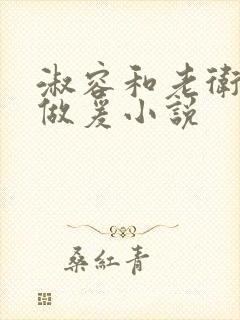 淑容和老衛
做爰小説
桑紅青